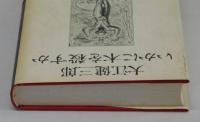 大江健三郎
いかに木を殺すか